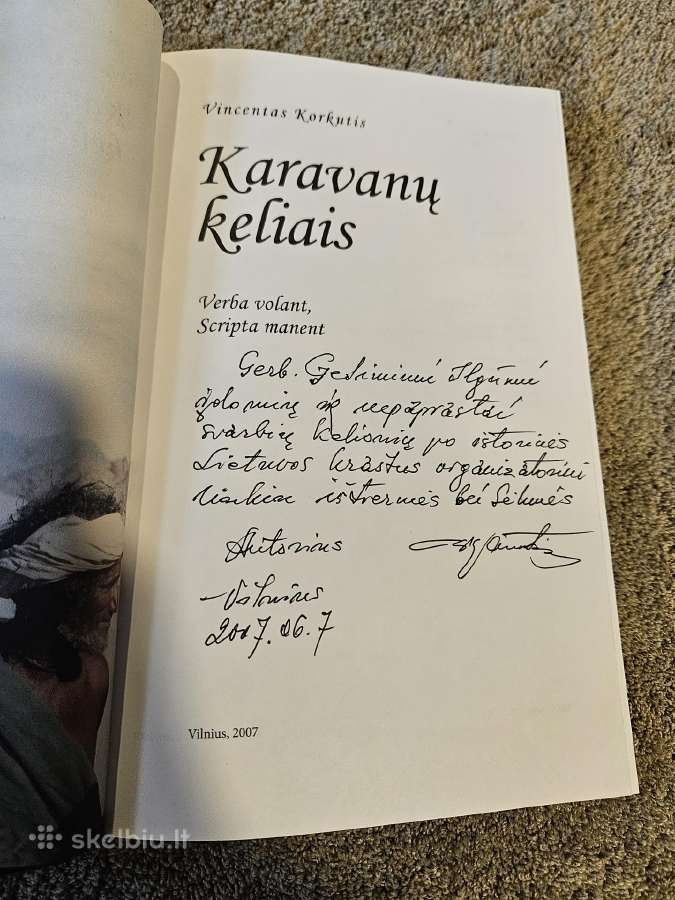 Vincentas Korkutis
Karavanų
keliais
Verba volant,
Scripta manent
Gerb. Gediminui Ilgūnui
įdomių ir nepaprastai
svarbių kelionių po istorines
Lietuvos kraštus organizatoriui
Linkiu ištvermės bei sėkmės
Autorius
Vilnius
2007.06.7
Vilnius, 2007
skelbiu.lt